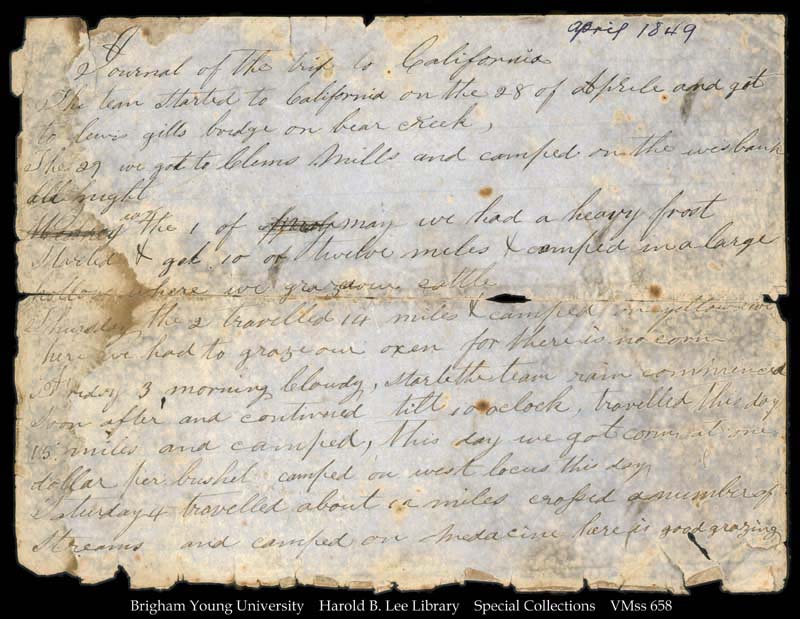 April 1849
Journal of the trip to California
The team started to California on the 28 of Aprile and got
to lewis gills bridge on bear creek,
The 29 we got to Clems Mills and camped on the wesbank
all night
the 1 of may we had a heavy frost
Started & got 10 or twelve miles & camped in a large
hollow where we graze our cattle
Thursday the 2 travelled 14 miles & camped on yellow
here we had to graze our oxen for there is no corn
Friday 3 morning Cloudy, started the team rain commenced
Soon after and continued till 10 oclock, travelled this day
15 miles and camped, this day we got corn at one
dollar per bushel camped on west locus this day
Saturday 4 travelled about miles crossed a number of
Streams and camped on Medacine here is good grazing
Brigham Young University Harold B. Lee Library Special Collections VMss 658